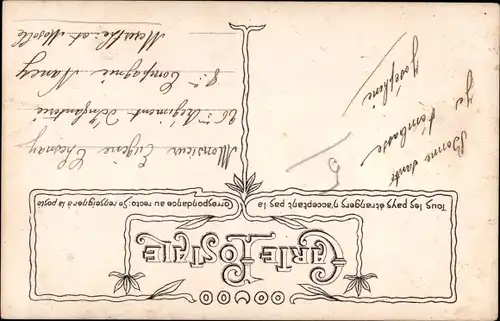 CARTE POSTALE
Tous les pays étrangers n'acceptant pas la
Correspondance au recto. Se renseigner à la poste
Bonne santé
Je t'embrasse
Joséphine
5
Monsieur Eugène Chesnay
26me Régiment d'Infanterie
8me Compagnie Nancy
Meurthe et Moselle